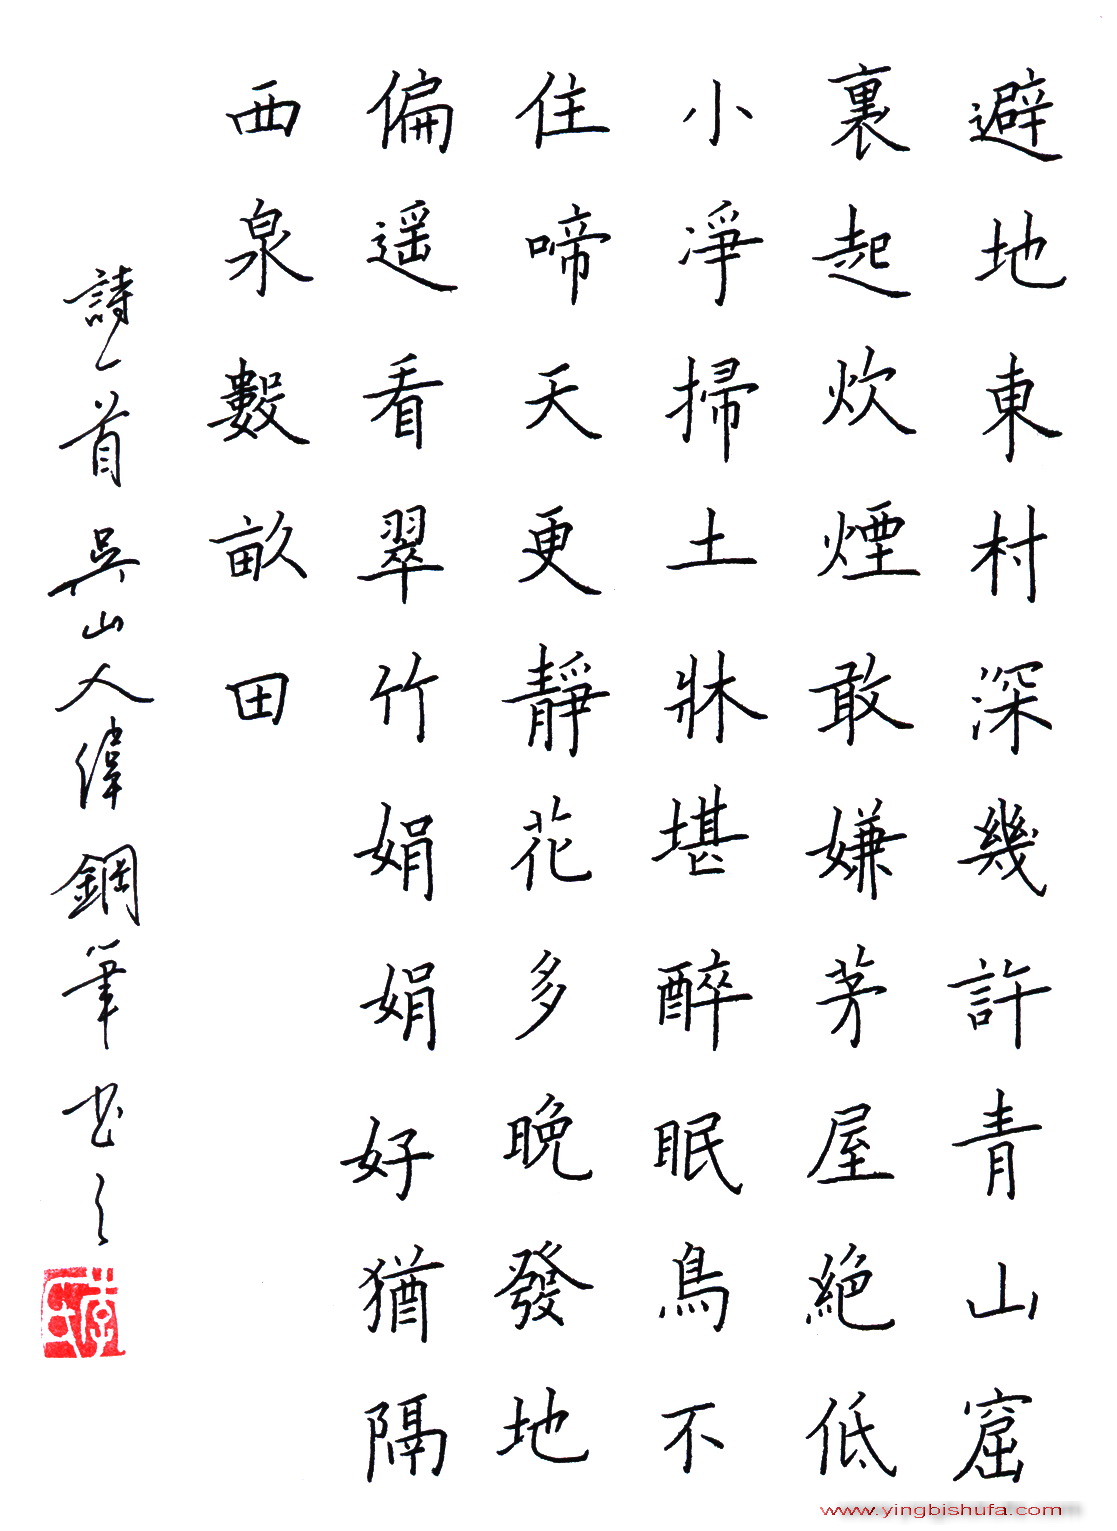 避地東村深幾許青山窟
裏起炊煙敢嫌茅屋絕低
小淨掃土牀堪醉眠鳥不
住啼天更靜花多晚發地
偏遥看翠竹娟娟好猶隔
西泉數畝田
詩一首吳山人偉鋼筆书之
www.yingbishufa.com